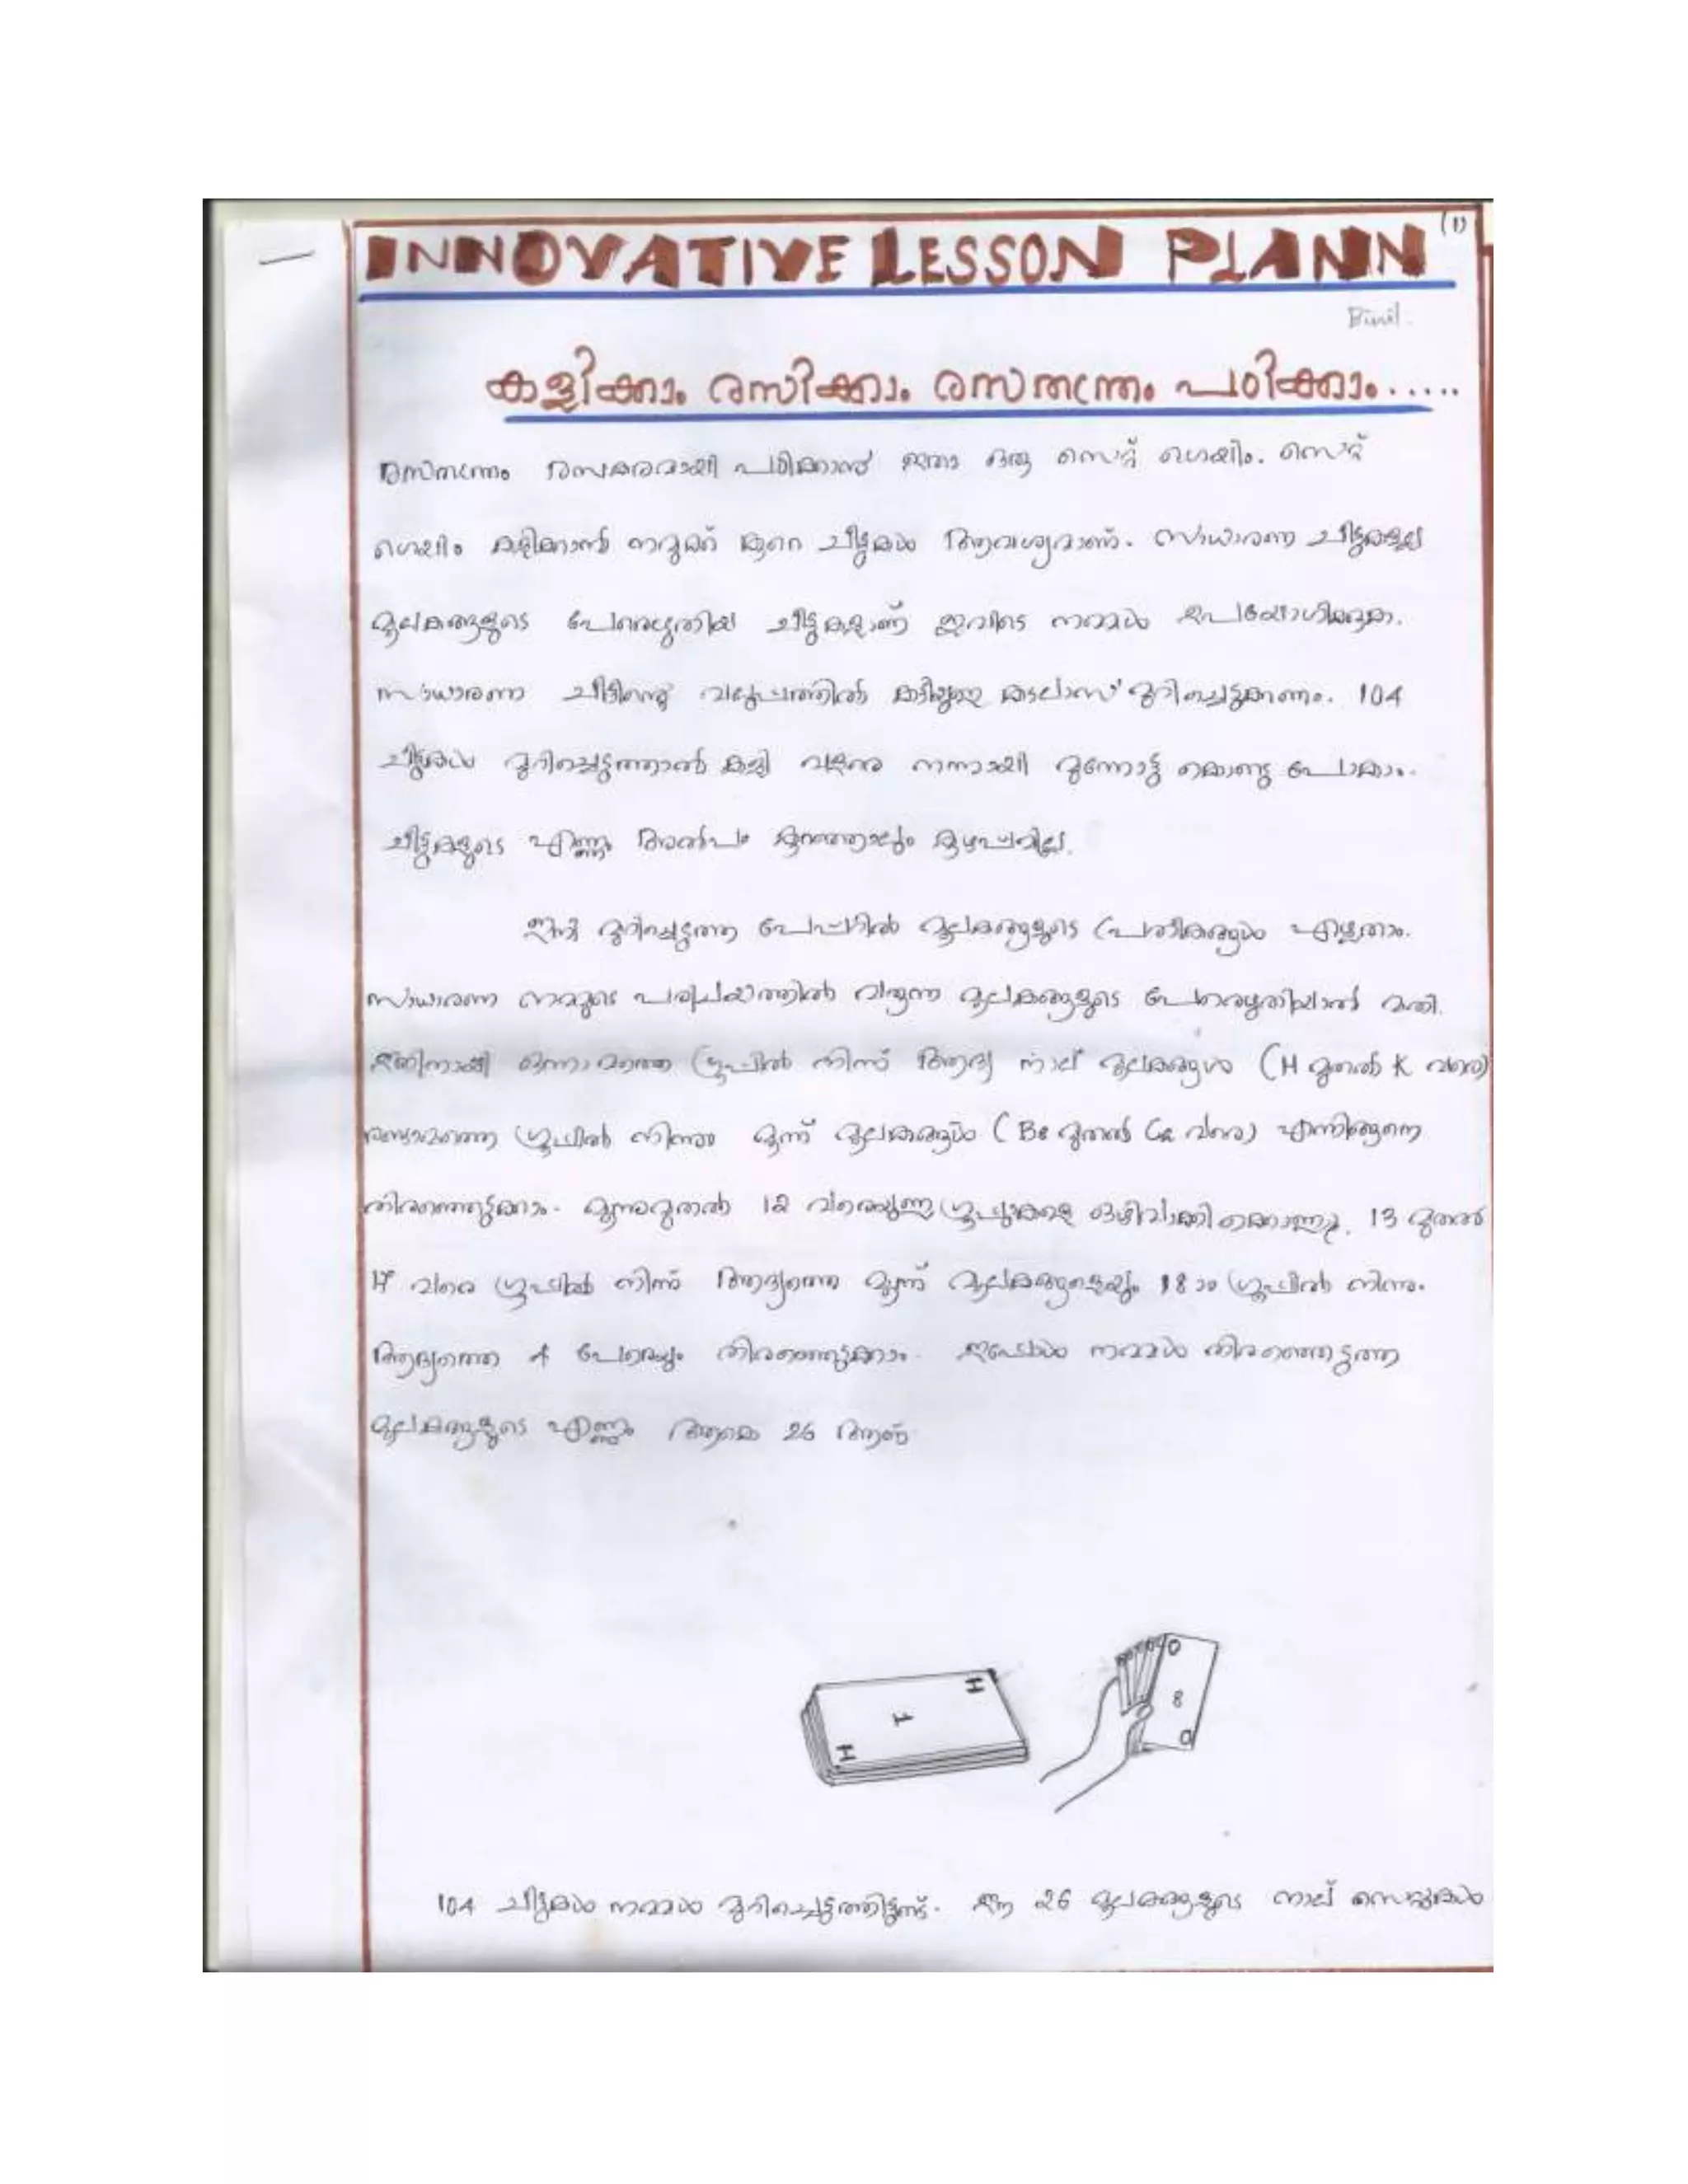 (1)
INNOVATIVE LESSON PLANN
Binil.
കളിക്കാം രസിക്കാം രസതന്ത്രം പഠിക്കാം.....
രസതന്ത്രം രസകരമായി പഠിക്കാൻ ഇതാ ഒരു സെറ്റ് ഗെയിം. സെറ്റ്
ഗെയിം കളിക്കാൻ നമുക്ക് കുറെ ചീട്ടുകൾ ആവശ്യമാണ്. സാധാരണ ചീട്ടുകളല്ല
മൂലകങ്ങളുടെ പേരെഴുതിയ ചീട്ടുകളാണ് ഇവിടെ നമ്മൾ ഉപയോഗിക്കുക.
സാധാരണ ചീട്ടിന്റെ വലുപ്പത്തിൽ കട്ടിയുള്ള കടലാസ് മുറിച്ചെടുക്കണം. 104
ചീട്ടുകൾ മുറിച്ചെടുത്താൽ കളി വളരെ നന്നായി മുന്നോട്ട് കൊണ്ടു പോകാം.
ചീട്ടുകളുടെ എണ്ണം അൽപം കുറഞ്ഞാലും കുഴപ്പമില്ല.
ഇനി മുറിച്ചെടുത്ത പേപ്പറിൽ മൂലകങ്ങളുടെ പ്രതീകങ്ങൾ എഴുതാം.
സാധാരണ നമ്മുടെ പരിചയത്തിൽ വരുന്ന മൂലകങ്ങളുടെ പേരെഴുതിയാൽ മതി.
ഇതിനായി ഒന്നാമത്തെ ഗ്രൂപ്പിൽ നിന്ന് ആദ്യ നാല് മൂലകങ്ങൾ (H മുതൽ K വരെ)
രണ്ടാമത്തെ ഗ്രൂപ്പിൽ നിന്നും മൂന്ന് മൂലകങ്ങൾ (Be മുതൽ Ca വരെ) എന്നിങ്ങനെ
തിരഞ്ഞെടുക്കാം. മൂന്നുമുതൽ 12 വരെയുള്ള ഗ്രൂപ്പുകളെ ഒഴിവാക്കിക്കൊള്ളൂ. 13 മുതൽ
17 വരെ ഗ്രൂപ്പിൽ നിന്ന് ആദ്യത്തെ മൂന്ന് മൂലകങ്ങളെയും 18ാം ഗ്രൂപ്പിൽ നിന്നും
ആദ്യത്തെ 4 പേരെയും തിരഞ്ഞെടുക്കാം. ഇപ്പോൾ നമ്മൾ തിരഞ്ഞെടുത്ത
മൂലകങ്ങളുടെ എണ്ണം ആകെ 26 ആണ്
H
1
H
O
8
O
104 ചീട്ടുകൾ നമ്മൾ മുറിച്ചെടുത്തിട്ടുണ്ട്. ഈ 26 മൂലകങ്ങളുടെ നാല് സെറ്റുകൾ